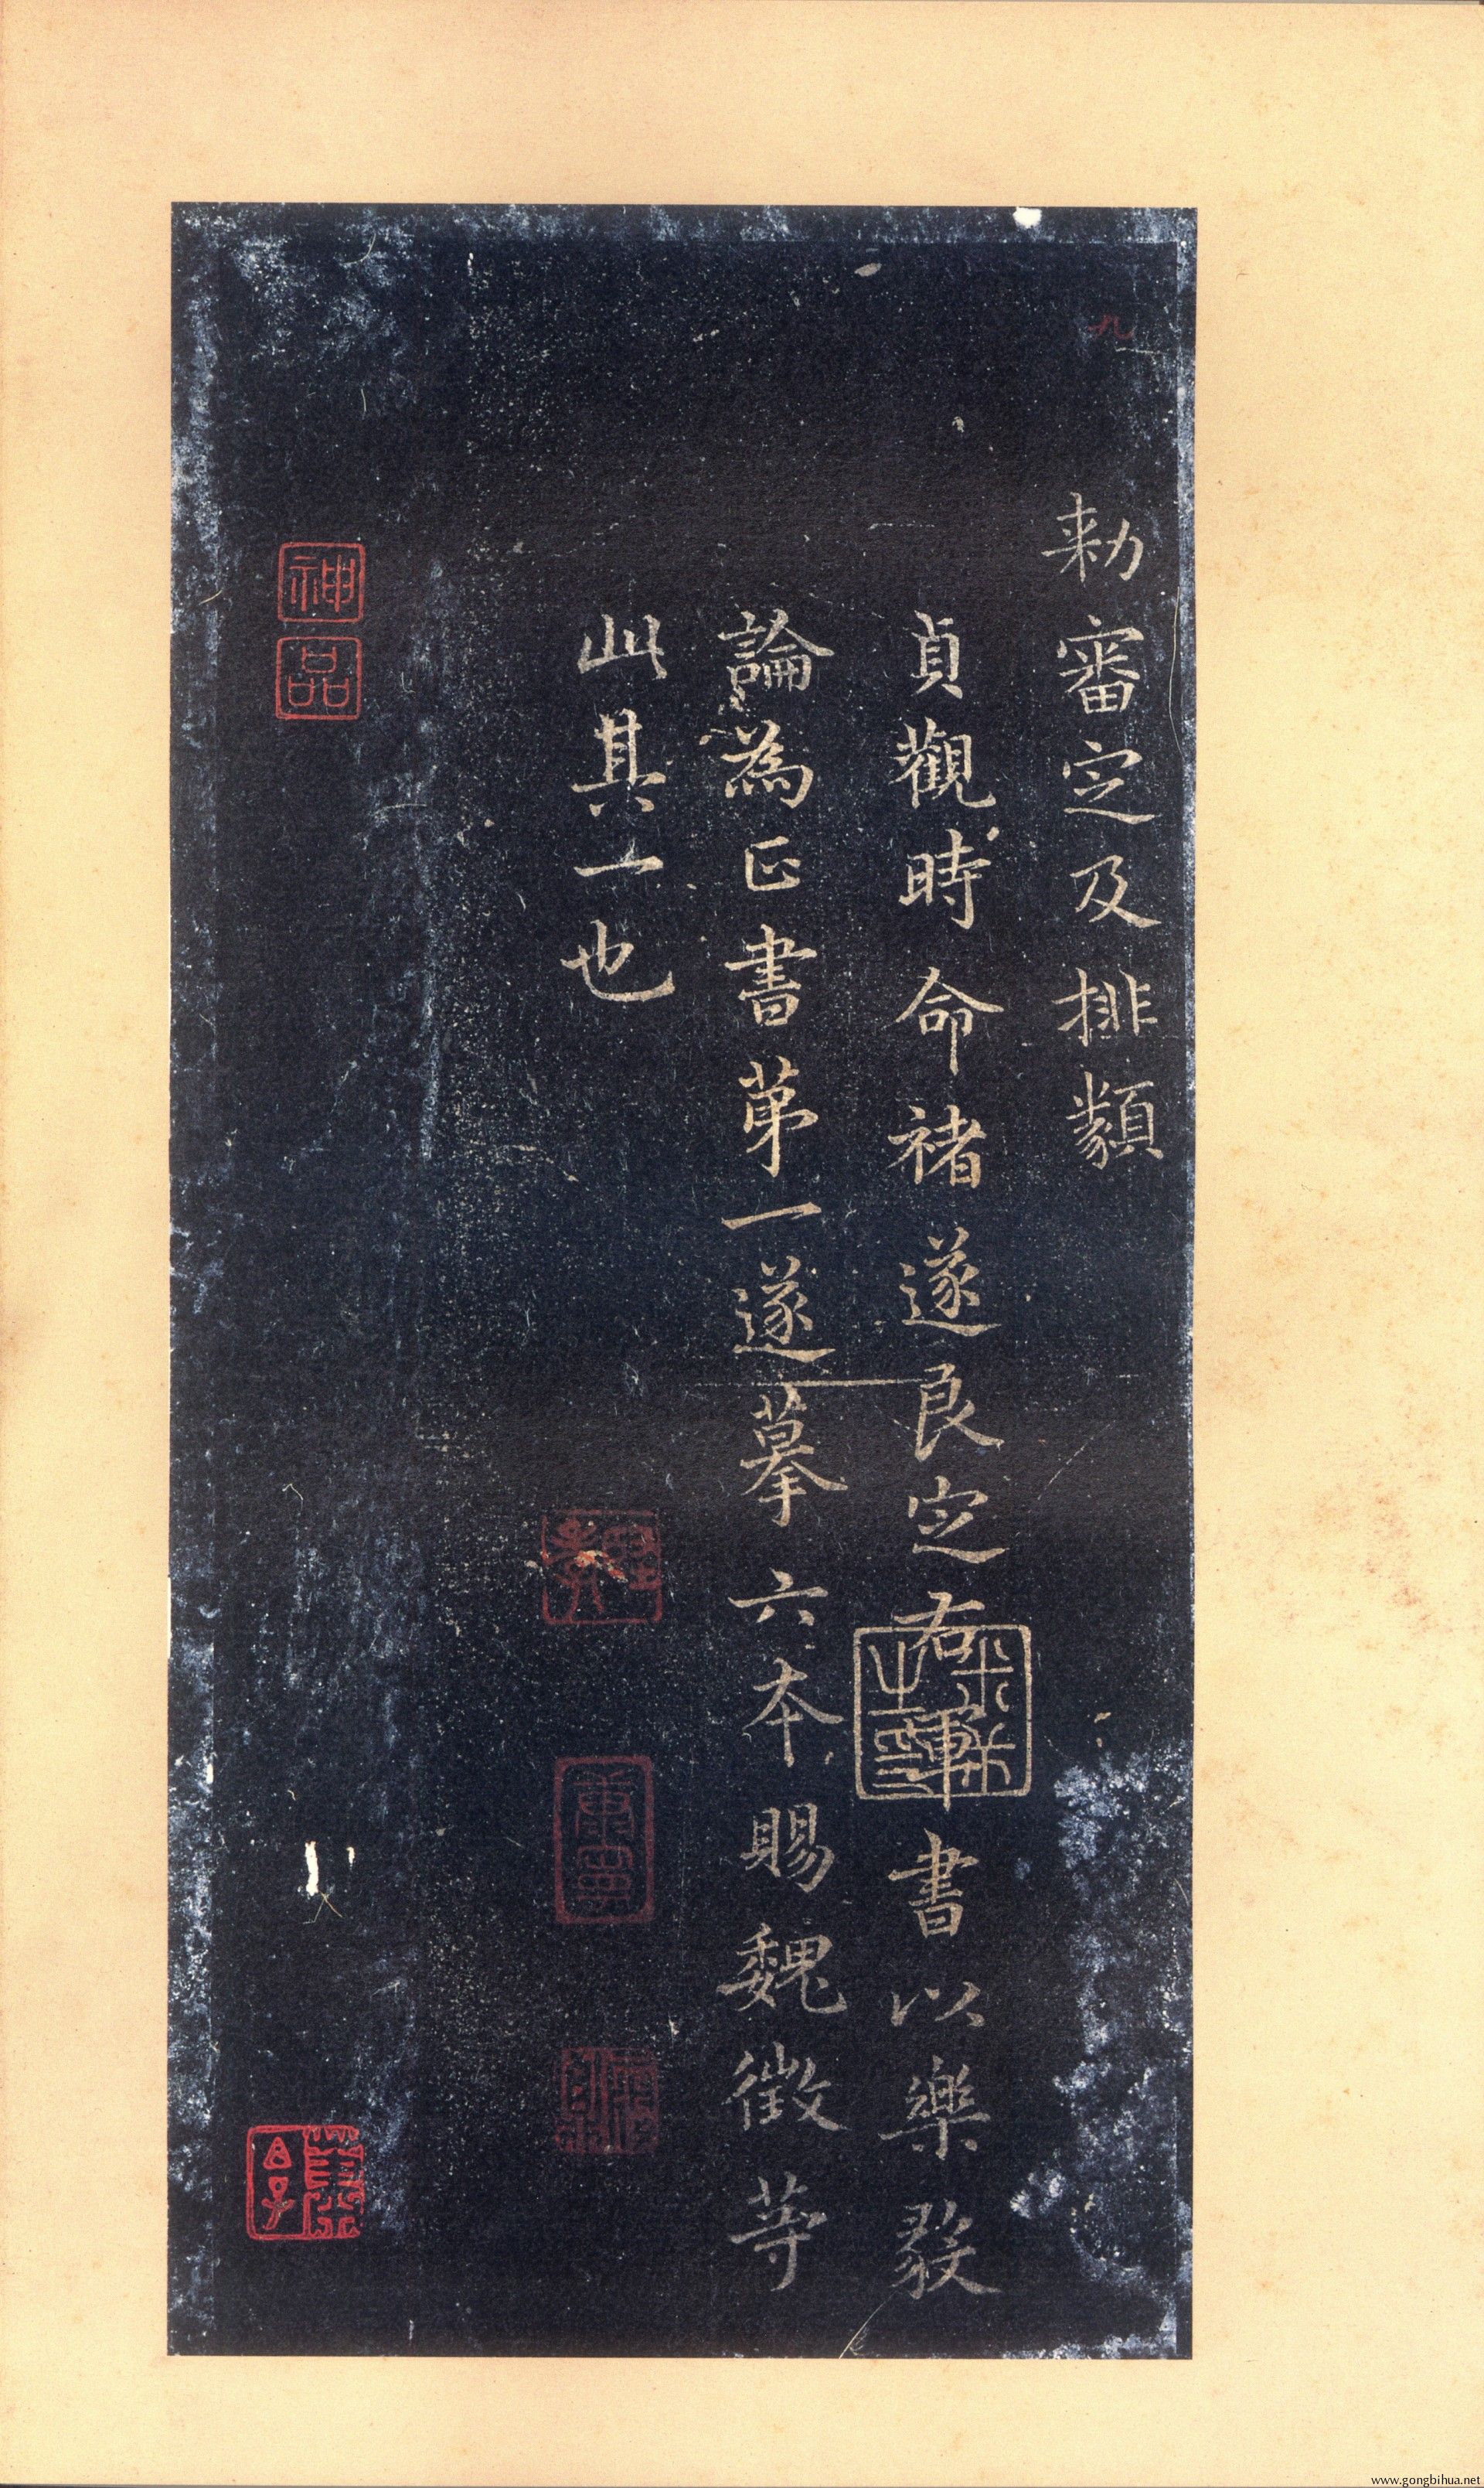 九
勑審定及排類
貞觀時命褚遂良定右軍書以樂毅
論為正書苐一遂摹六本賜魏徵等
此其一也
神品
www.gongbihua.net